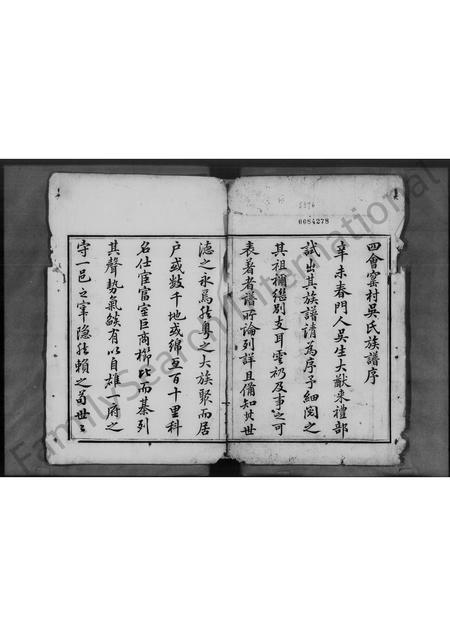 5376
0084278
四會窰村吳氏族譜序
辛未春門人吳生大猷來禮部
試出其族譜請為序予細閱之
其祖禰繼別支耳雲礽及事之可
表著者譜所論列詳且備知其世
德之永焉然粵之大族聚而居
户或數千地或綿亙百十里科
名仕宦富室巨商櫛比而棊列
其聲勢氣餤有以自雄一府之
守一邑之宰隱然賴之若世〻
FamilySearch International